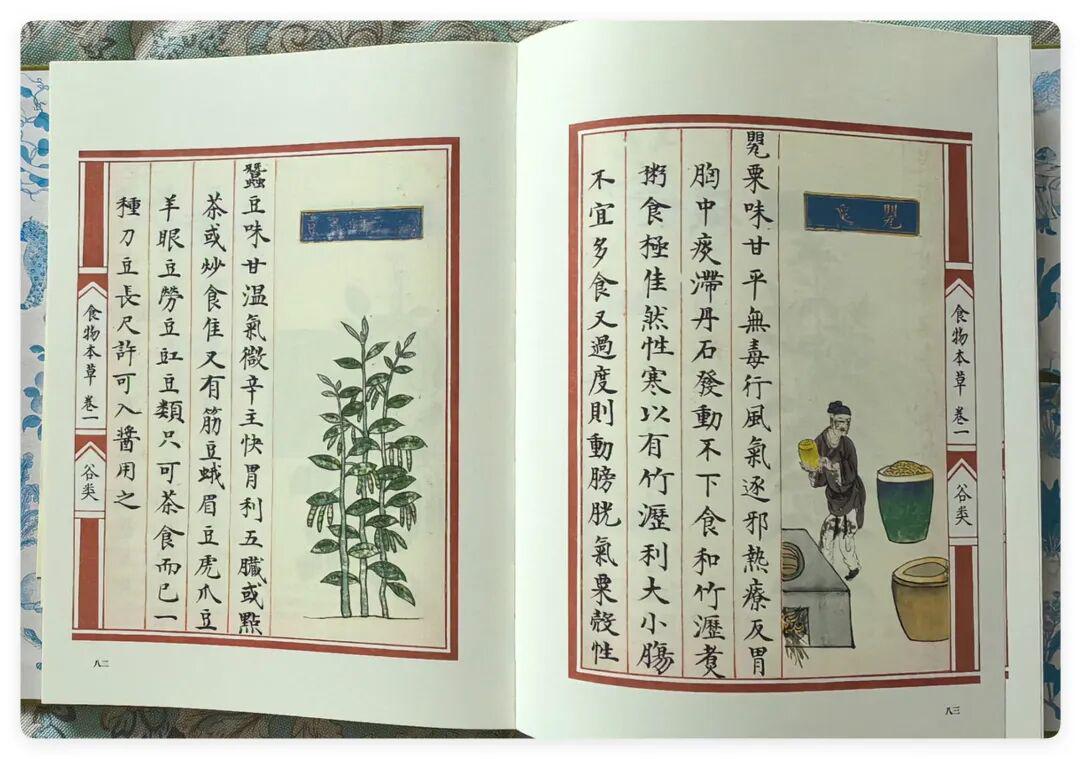 豆
蠶豆味甘溫氣微辛主快胃利五臟或點
茶或炒食佳又有筋豆蛾眉豆虎爪豆
羊眼豆勞豆豇豆類只可茶食而已一
種刀豆長尺許可入醬用之
食物本草 卷一
谷类
八二
食物本草 卷一
谷类
粟味甘平無毒行風氣逐邪熱療反胃
胸中痰滯丹石發動不下食和竹瀝煮
粥食極佳然性寒以有竹瀝利大小腸
不宜多食又過度則動膀胱氣粟殼性
八三